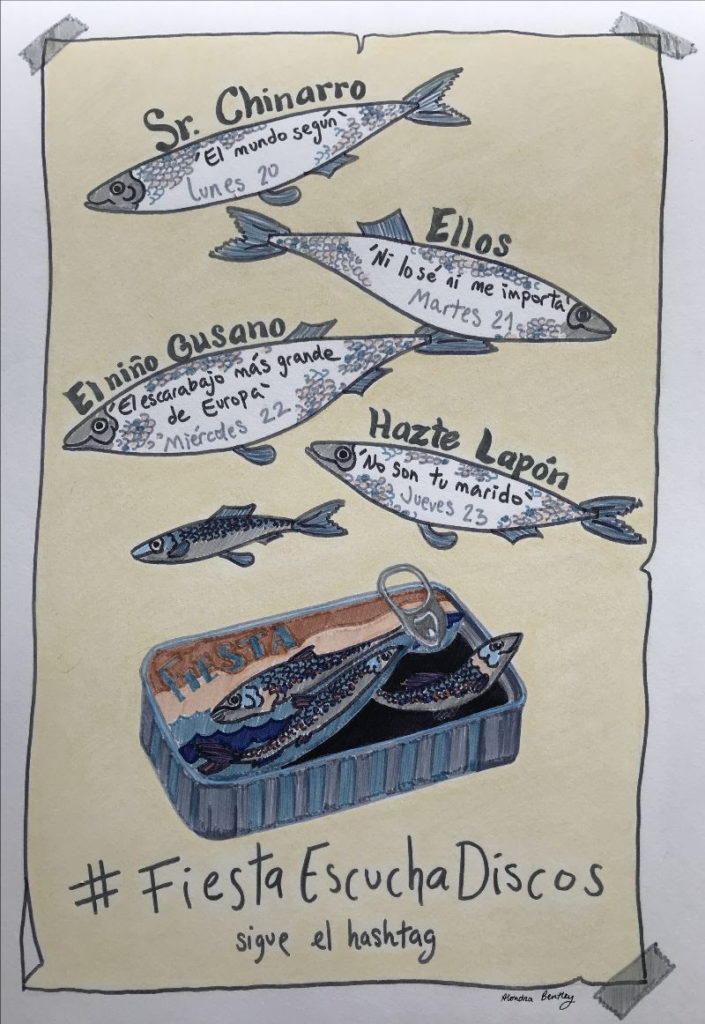 Sr. Chinarro
'El mundo según'
Lunes 20
Ellos
'Ni lo sé ni me importa'
Martes 21
El niño Gusano
'El escarabajo más grande
de Europa'
Miércoles 22
Hazte Lapón
'No son tu marido'
Jueves 23
FIESTA
#FiestaEscuchaDiscos
sigue el hashtag
Alondra Bentley